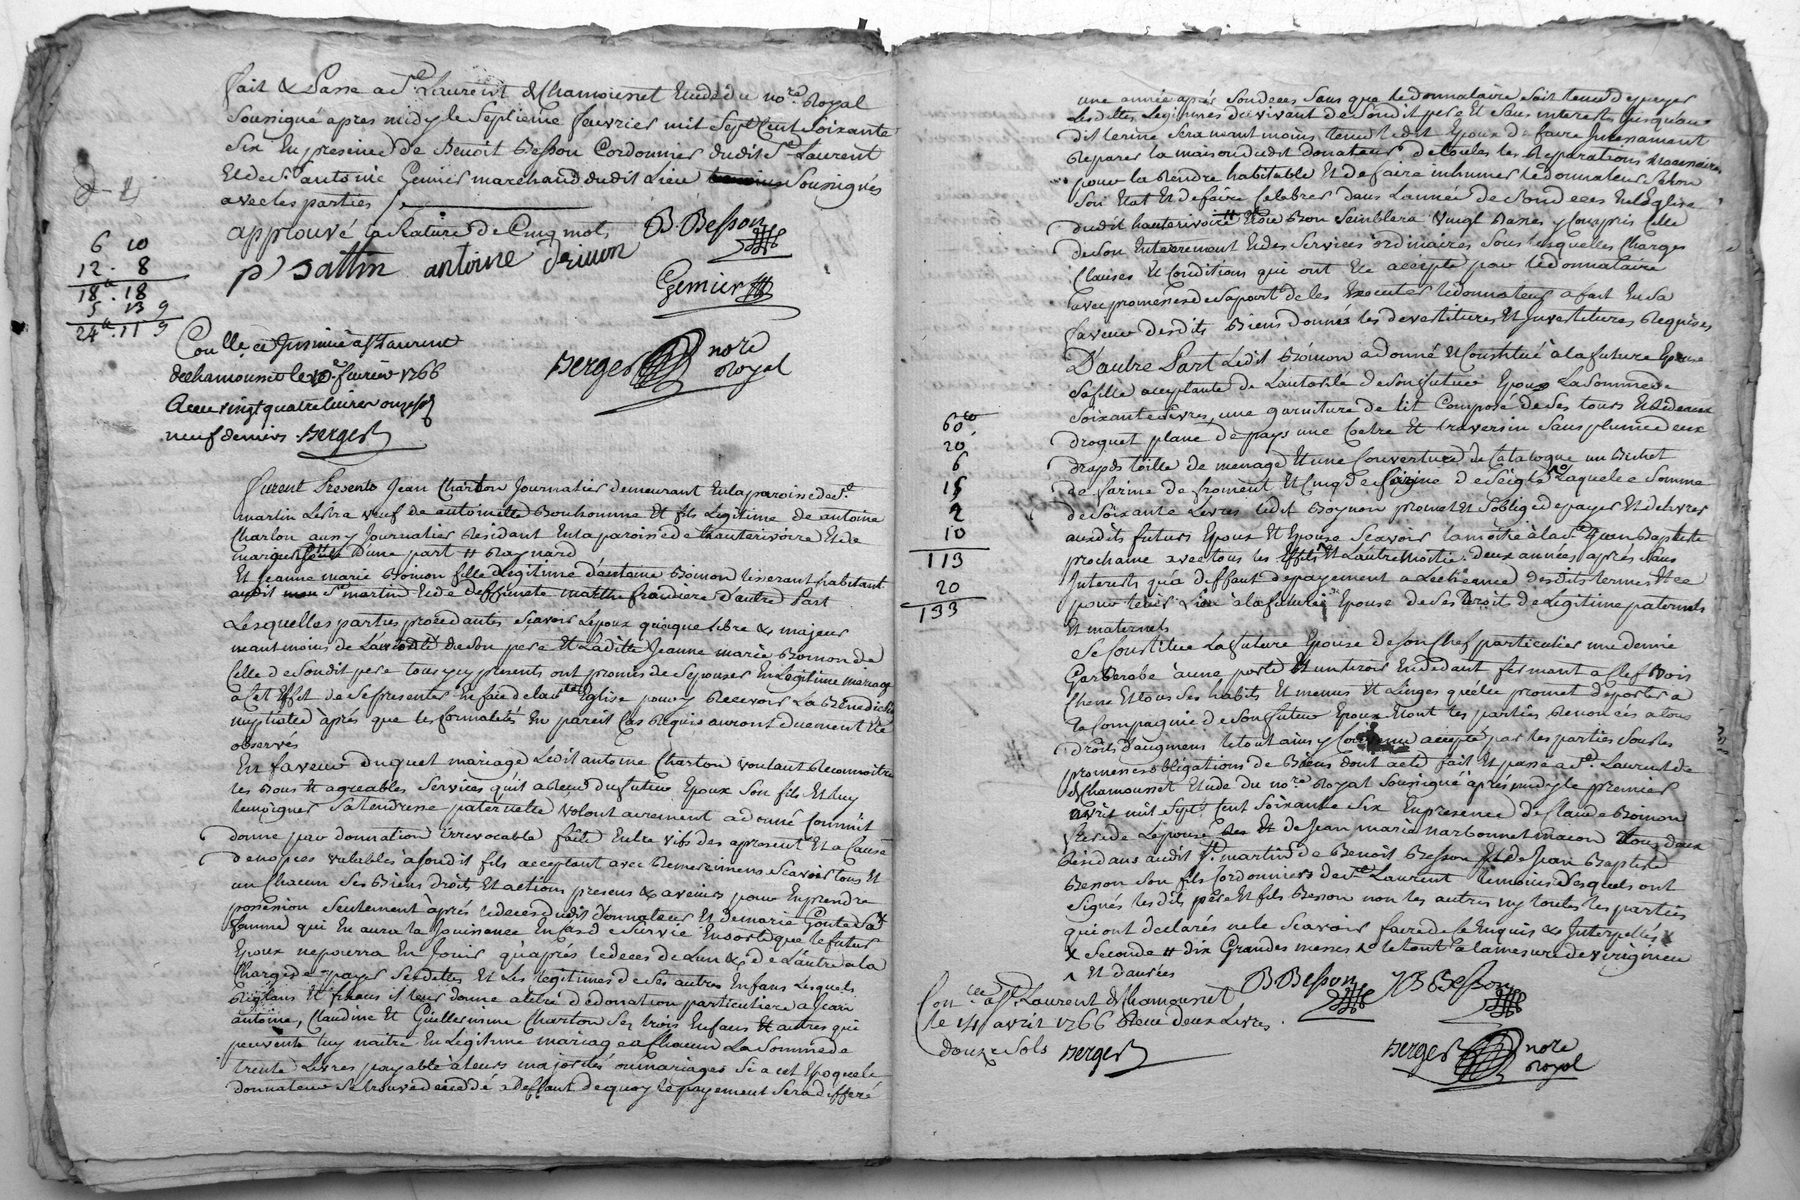 fait & Passé a St Laurent de Chamousset Etude du nore Royal
Soussigné apres midy le Septieme fevrier mil Sept Cent Soixante
Six En presence de Benoit Besson Cordonnier dudit St Laurent
Et de Sr antoine Gemier marchand dudit Lieu Soussignés
avec les parties
approuvé la Rature de Cinq mots B Besson
p Sattin antoine
Gemier
6 10
12 . 8
18 . 18
5 13 9
24 . 11 9
Berger nore
Royal
Con lle et Insinué a St Laurent
de chamousset le fevrier 1766
Receu vingt quatre livres onze sols
neuf deniers . Berger
furent Presents Jean Charton Journalier demeurant En la paroisse de St
martin Lestra veuf de antoinette Bonhomme Et fils Legitime de antoine
Charton aussy Journalier Residant En la paroisse de hauterivoire Et de
marie d'une part # Raynard
Et Jeanne marie Boinon fille Legitime d'antoine Boinon tisserant habitant
audit St martin Et de deffunte marthe d'autre Part
Lesquelles parties procedantes Scavoir Lepoux quoique libre & majeur
neantmoins de L'autorité de Son pere Et Laditte Jeanne marie Boinon de
Celle de Sondit pere tous icy presents ont promis de Sepouser En Legitime mariage
a Cet Effet de Se presenter En face de la ste Eglise pour y Recevoir La Benediction
nuptialle après que les formalités En pareil Cas Requises auront duement Eté
observés
En faveur duquel mariage Ledit antoine Charton voulant Reconnoitre
les Bons & agreables Services qu'il a Receu du futur Epoux Son fils Et luy
temoigner Sa tendresse paternelle volontairement a donné Comme il
donne par donnation irrevocable faite Entre vifs des apresent Et a Cause
de nopces valables a Sondit fils acceptant avec Remerciemens Scavoir tous Et
un Chacun Ses Biens droits Et actions presens & avenirs pour En prendre
possession Seulement après le deces dudit donnateur Et de marie Sa
femme qui En aura la Jouissance En Cas de Survie Ensorte que le futur
Epoux ne pourra En Jouir qu'après le deces de L'un & de L'autre a la
Charge de payer Ses dettes Et Les legitimes de Ses autres Enfans Lesquels
Reglant Et fixant il leur donne a titre de donation particuliere a Jean
antoine, Claudine Et Guillermine Charton Ses trois Enfans & autres qui
peuvent luy naitre En Legitime mariage a Chacun La Somme de
trente Livres payable a leurs majorités ou mariages Si a cet Epoque le
donnateur Se trouve decedé a Deffaut de quoy le payement Sera differé
une année après Son deces Sans que le donnataire Soit tenu de payer
Lesdittes Legitimes du vivant de Sondit pere Et Sans interest Jusqu'au
dit terme Sera neantmoins tenu ledit Epoux de faire Incessament
Reparer la maison dudit donateur de toutes les Reparations necessaires
pour la Rendre habitable Et de faire inhumer le donnateur Selon
Son Etat Et de faire Celebrer dans L'année de Son deces En L'eglise
dudit hauterivoire # Bon Semblera vingt Basses y Compris Celle
de Son Enterrement Et des Services ordinaires Sous lesquelles Charges
Clauses & Conditions qui ont Eté accepté par le donnataire
avec promesses de Sa part de les Executer le donnateur a fait En Sa
faveur desdits Biens donnés les devetitures Et Investitures Requises
D'autre Part Ledit Boinon a donné & Constitué à la future Epouse
Sa fille acceptante de L'autorité de Son futur Epoux La Somme de
Soixante Livres, une garniture de lit Composé de Ses tours Et Rideaux
droguet plane de pays une Coetre Et traversin Sans plume deux
draps toille de menage Et une Couverture de Catalogne un Bichet
de farine de froment Et Cinq de farine de Seigle Laquelle Somme
de Soixante Livres ledit Boynon promet Et S'oblige de payer Et delivrer
auxdits futurs Epoux Et Epouse Scavoir la moitié à la St Jean Baptiste
prochaine avec tous les Effets Et L'autre Moitié deux années après Sans
Interests qu'a deffaut de payement a L'echeance desdits termes Et ce
pour tenir Lieu à la future Epouse de Ses Droits de Legitime paternels
Et maternels
60
20
6
15
2
10
113
20
133
Se Constitue La future Epouse de Son Chef particulier une demie
Garderobe à une porte Et un tiroir En dedant fermant a Clef Bois
Chene Et tous Ses habits Et menus & Linges qu'elle promet de porter a
la Compagnie de Son futur Epoux dont les parties Renoncés a tous
droits d'augmens le tout ainsy accepté par les parties Sous les
promesses obligations de Biens dont acte fait Et passé a St Laurent de
Chamousset Etude du nore Royal Soussigné après midy le premier
avril mil Sept Cent Soixante Six En presence de Claude Boinon
frere de Lepouse Et de Jean marie narbonnet macon tous deux
Residans audit St martin de Benoit Besson Et de Jean Baptiste
Besson Son fils Cordonniers de St Laurent temoins desquels ont
Signés lesdits père Et fils Besson non les autres ny toutes les parties
qui ont declarés ne le Scavoir faire de ce Enquis & Interpellés
x Seconde # dix Grandes messes le tout a la mesure de virigneu
Et d'avoises
Con lee a St Laurent de Chamousset
le 14 avril 1766 Receu deux Livres
douze Sols Berger
B Besson JB Besson
Berger nore
Royal